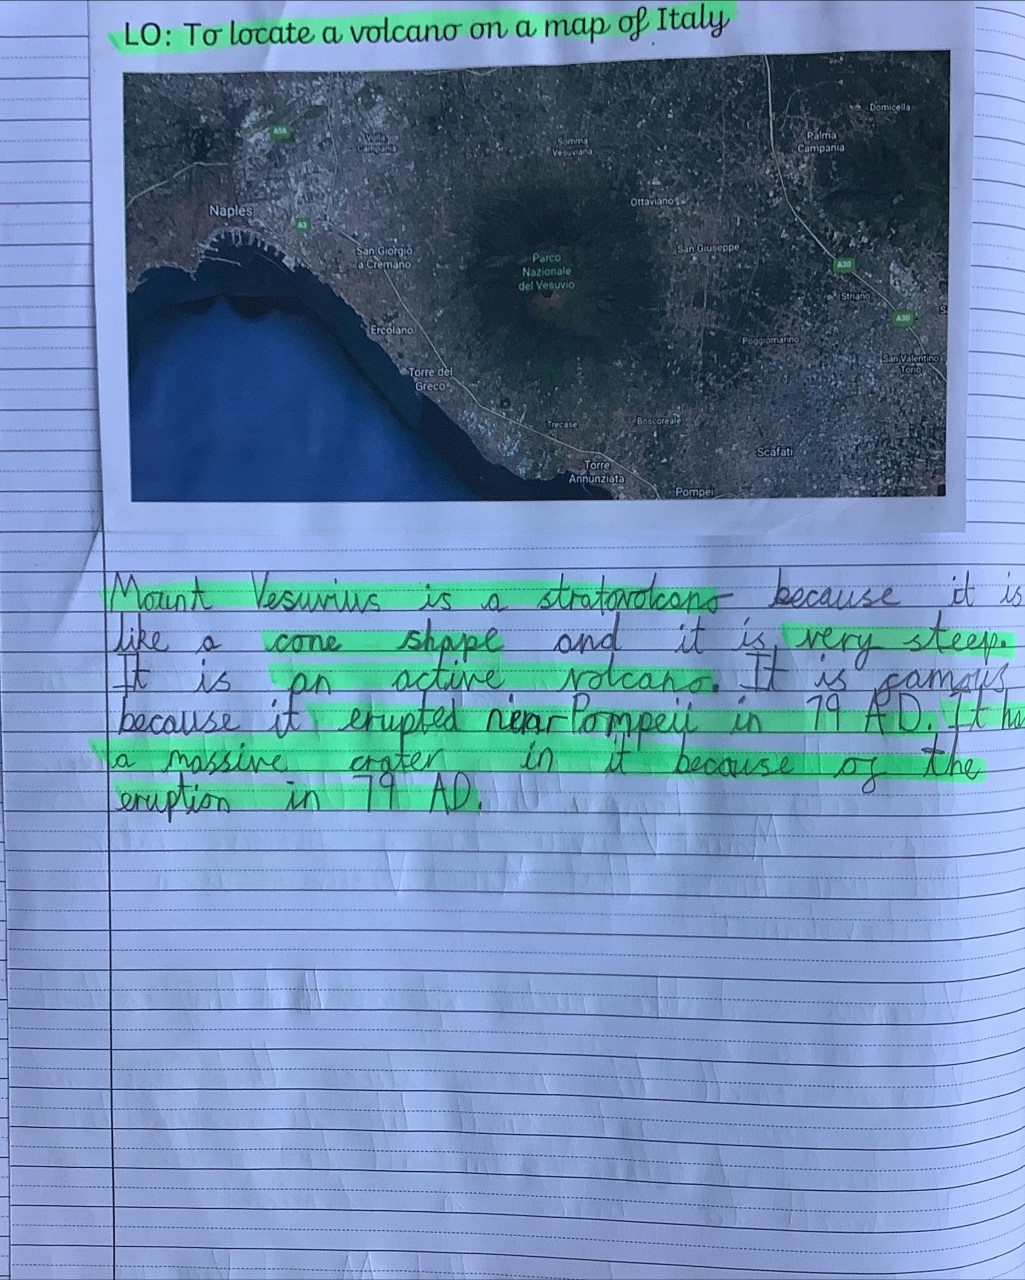 LO: To locate a volcano on a map of Italy
Domicella
A56
Volla
Campania
Somma
Vesuviana
Palma
Campania
Naples
A3
Ottaviano
San Giorgio
a Cremano
San Giuseppe
Parco
Nazionale
del Vesuvio
A30
Striano
S
A30
Ercolano
Poggiomarino
San Valentino
Torio
Torre del
Greco
Trecase
Boscoreale
Scafati
Torre
Annunziata
Pompei
Mount Vesuvius is a stratovolcano because it is
like a cone shape and it is very steep.
It is an active volcano. It is famous
because it erupted near Pompeii in 79 AD. It ha
a massive crater in it because of the
eruption in 79 AD.